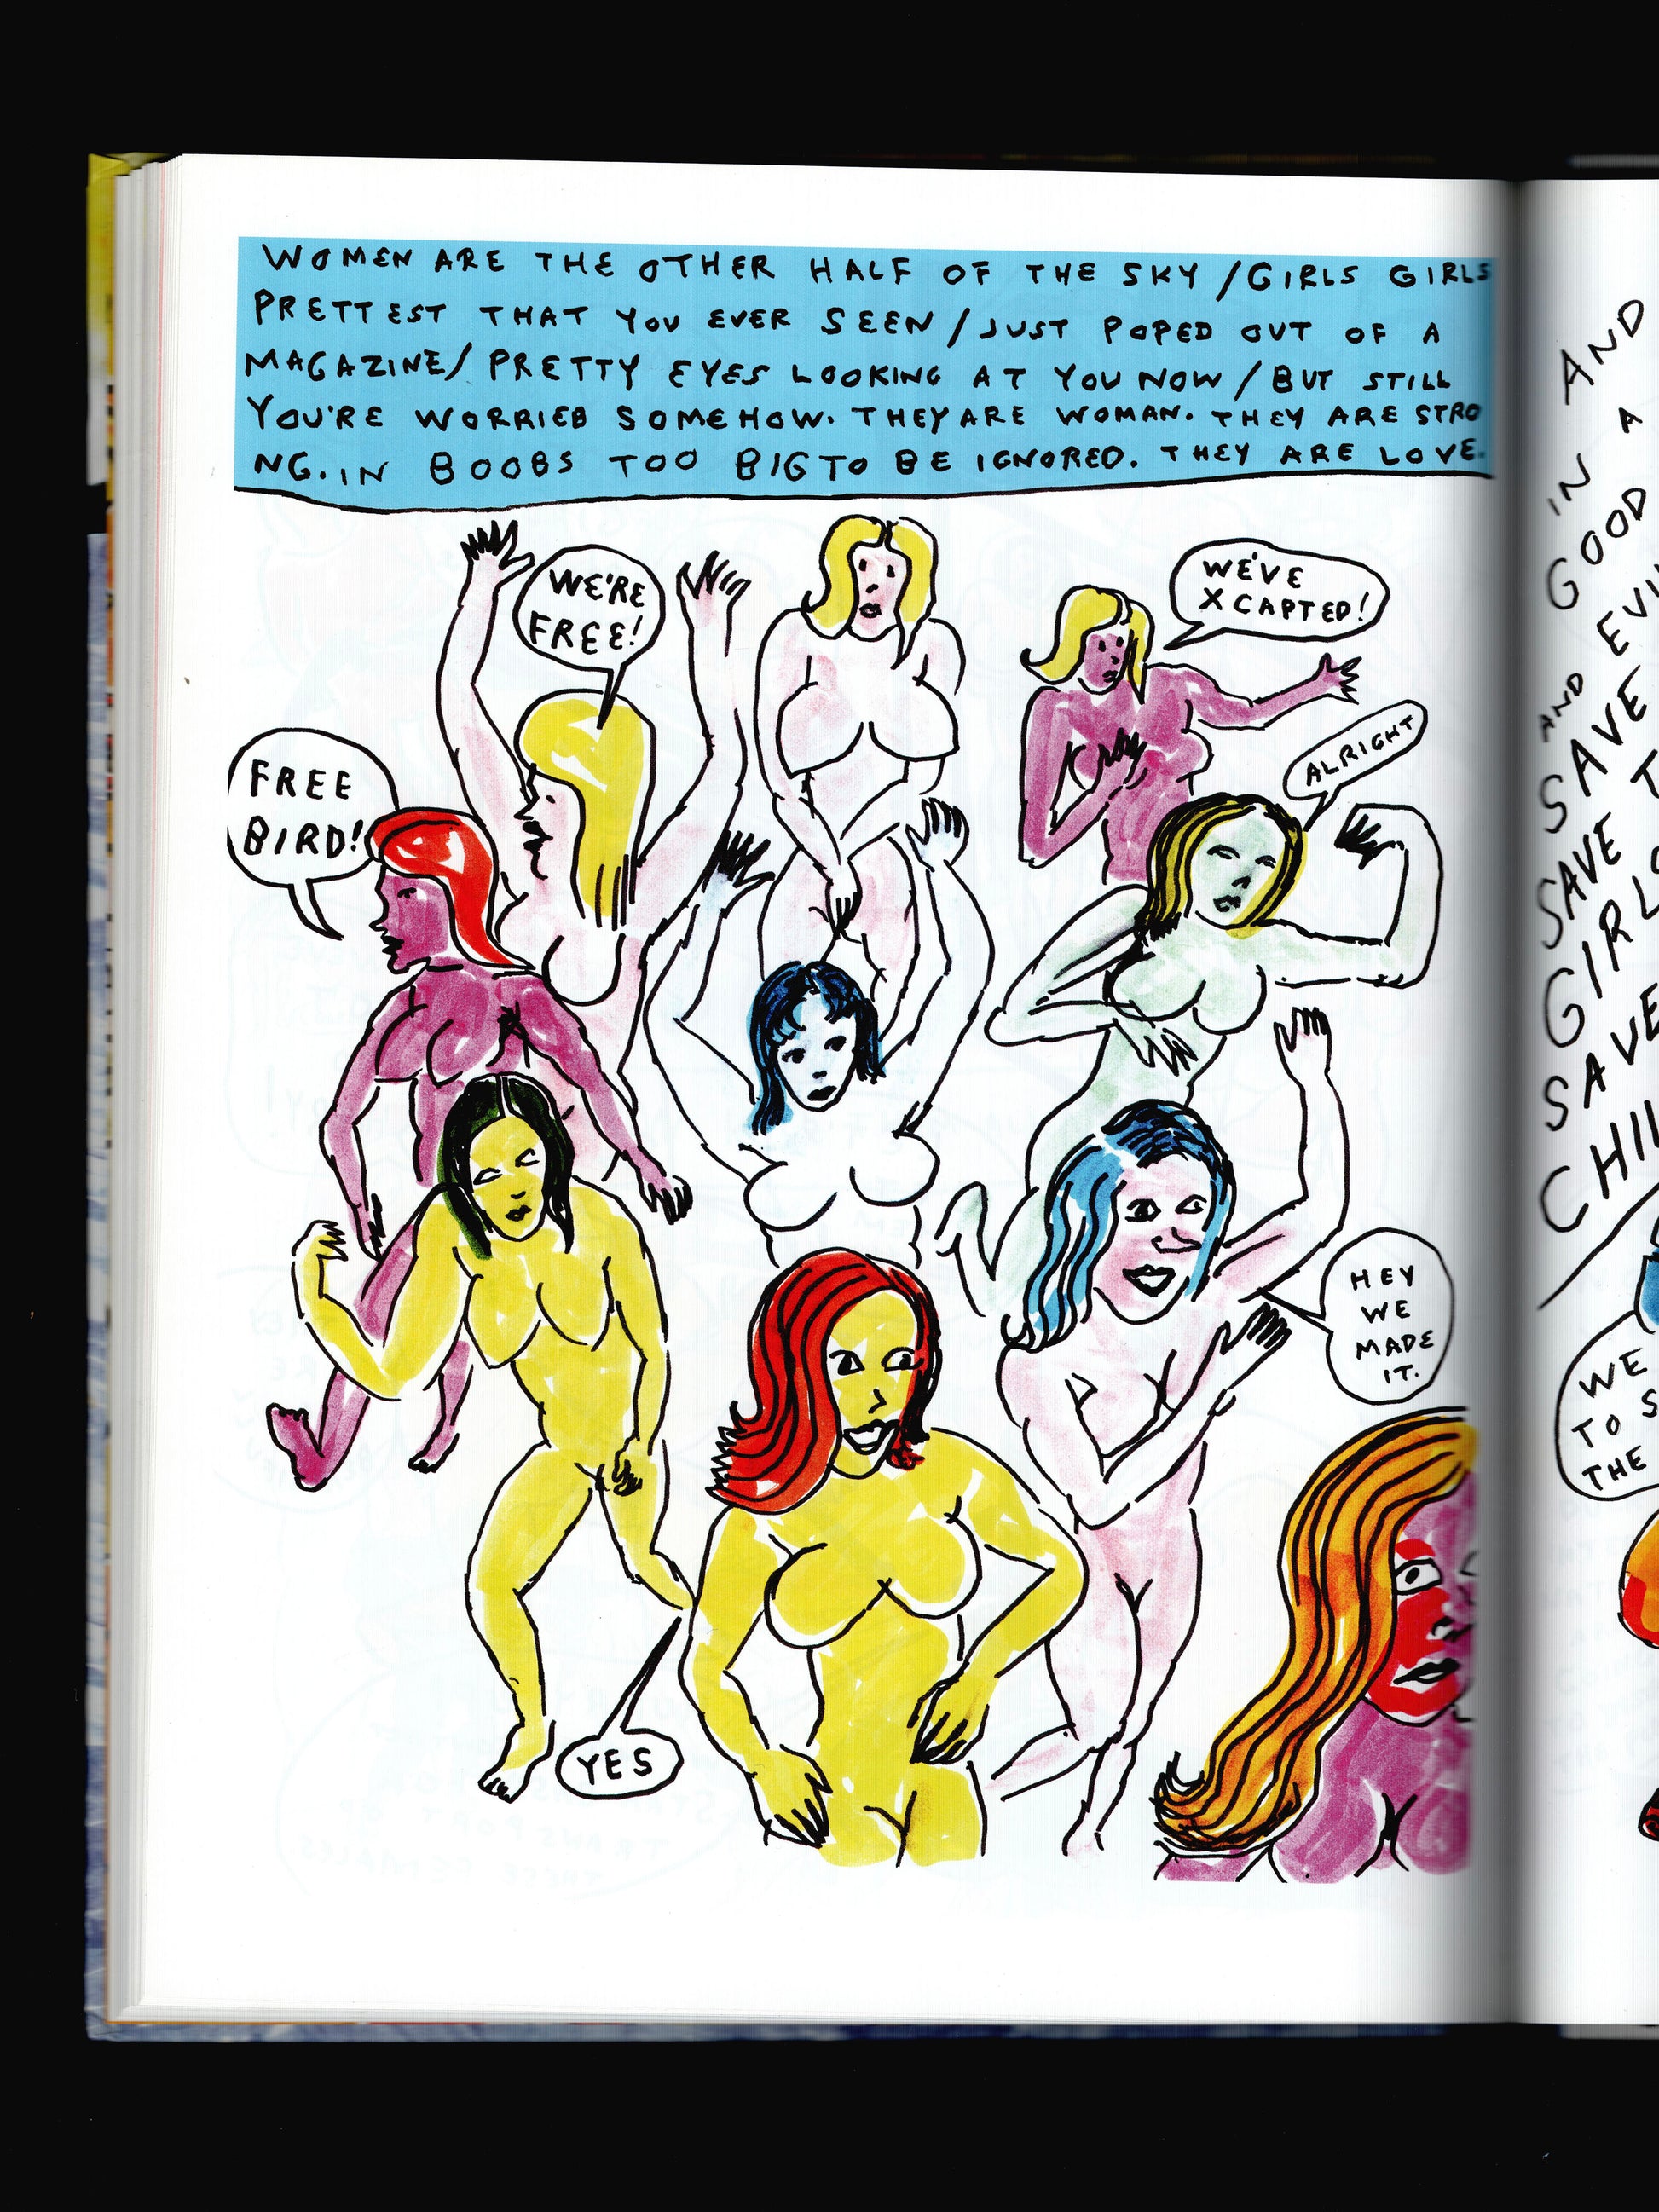 WOMEN ARE THE OTHER HALF OF THE SKY / GIRLS GIRLS
PRETTEST THAT YOU EVER SEEN / JUST POPED OUT OF A
MAGAZINE / PRETTY EYES LOOKING AT YOU NOW / BUT STILL
YOU'RE WORRIED SOMEHOW. THEY ARE WOMAN. THEY ARE STRO
NG. IN BOOBS TOO BIG TO BE IGNORED. THEY ARE LOVE.
WE'RE
FREE!
WE'VE
XCAPTED!
ALRIGHT
FREE
BIRD!
HEY
WE
MADE
IT.
YES
AND
A
IN
GOOD
AND
SAVE
SAVE
GIRLS
SAVE
WE
TO
THE